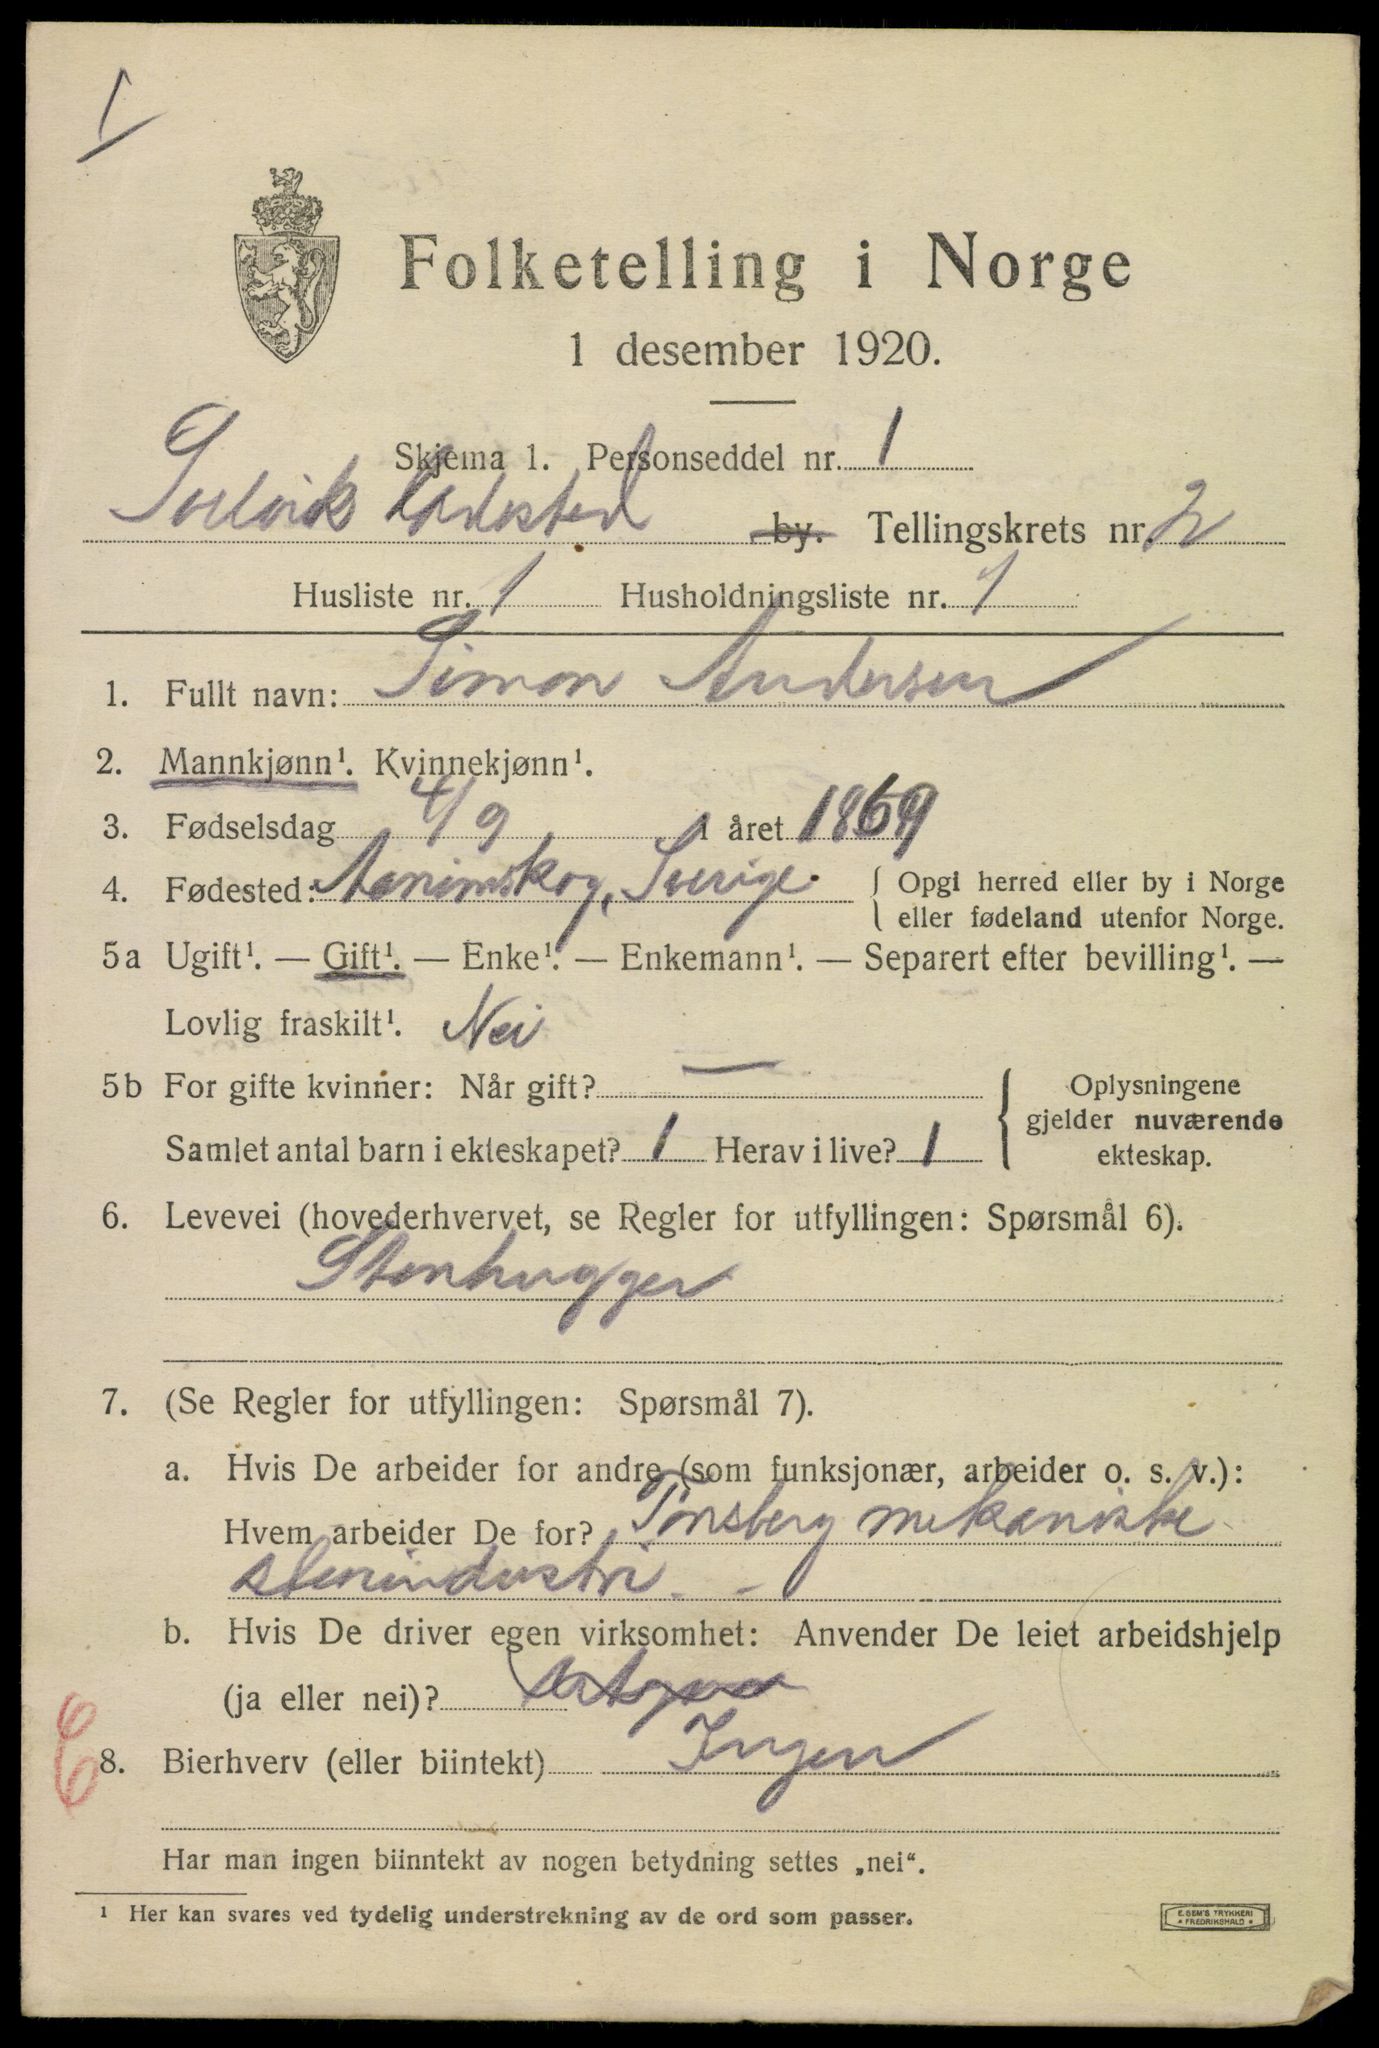 Folketelling i Norge
1 desember 1920.
Skjema 1. Personseddel nr. 1
Svelvik Ladested by. Tellingskrets nr. 2
Husliste nr. 1 Husholdningsliste nr. 1
1. Fullt navn: Simon Andersen
2. Mannkjønn¹. Kvinnekjønn¹.
3. Fødselsdag 4/9 i året 1869
4. Fødested: Aanimskog, Sverige. { Opgi herred eller by i Norge
eller fødeland utenfor Norge.
5a Ugift¹. — Gift¹. — Enke¹. — Enkemann¹. — Separert efter bevilling¹. —
Lovlig fraskilt¹. Nei
5b For gifte kvinner: Når gift? — { Oplysningene
gjelder nuværende
ekteskap.
Samlet antal barn i ekteskapet? 1 Herav i live? 1
6. Levevei (hovederhvervet, se Regler for utfyllingen: Spørsmål 6).
Stenhugger
7. (Se Regler for utfyllingen: Spørsmål 7).
a. Hvis De arbeider for andre (som funksjonær, arbeider o. s. v.):
Hvem arbeider De for? Tønsberg mekaniske
stenindustri. -
b. Hvis De driver egen virksomhet: Anvender De leiet arbeidshjelp
(ja eller nei)?
8. Bierhverv (eller biintekt) Ingen
Har man ingen biinntekt av nogen betydning settes „nei“.
¹ Her kan svares ved tydelig understrekning av de ord som passer.
E. SEM'S TRYKKERI
* FREDRIKSHALD *